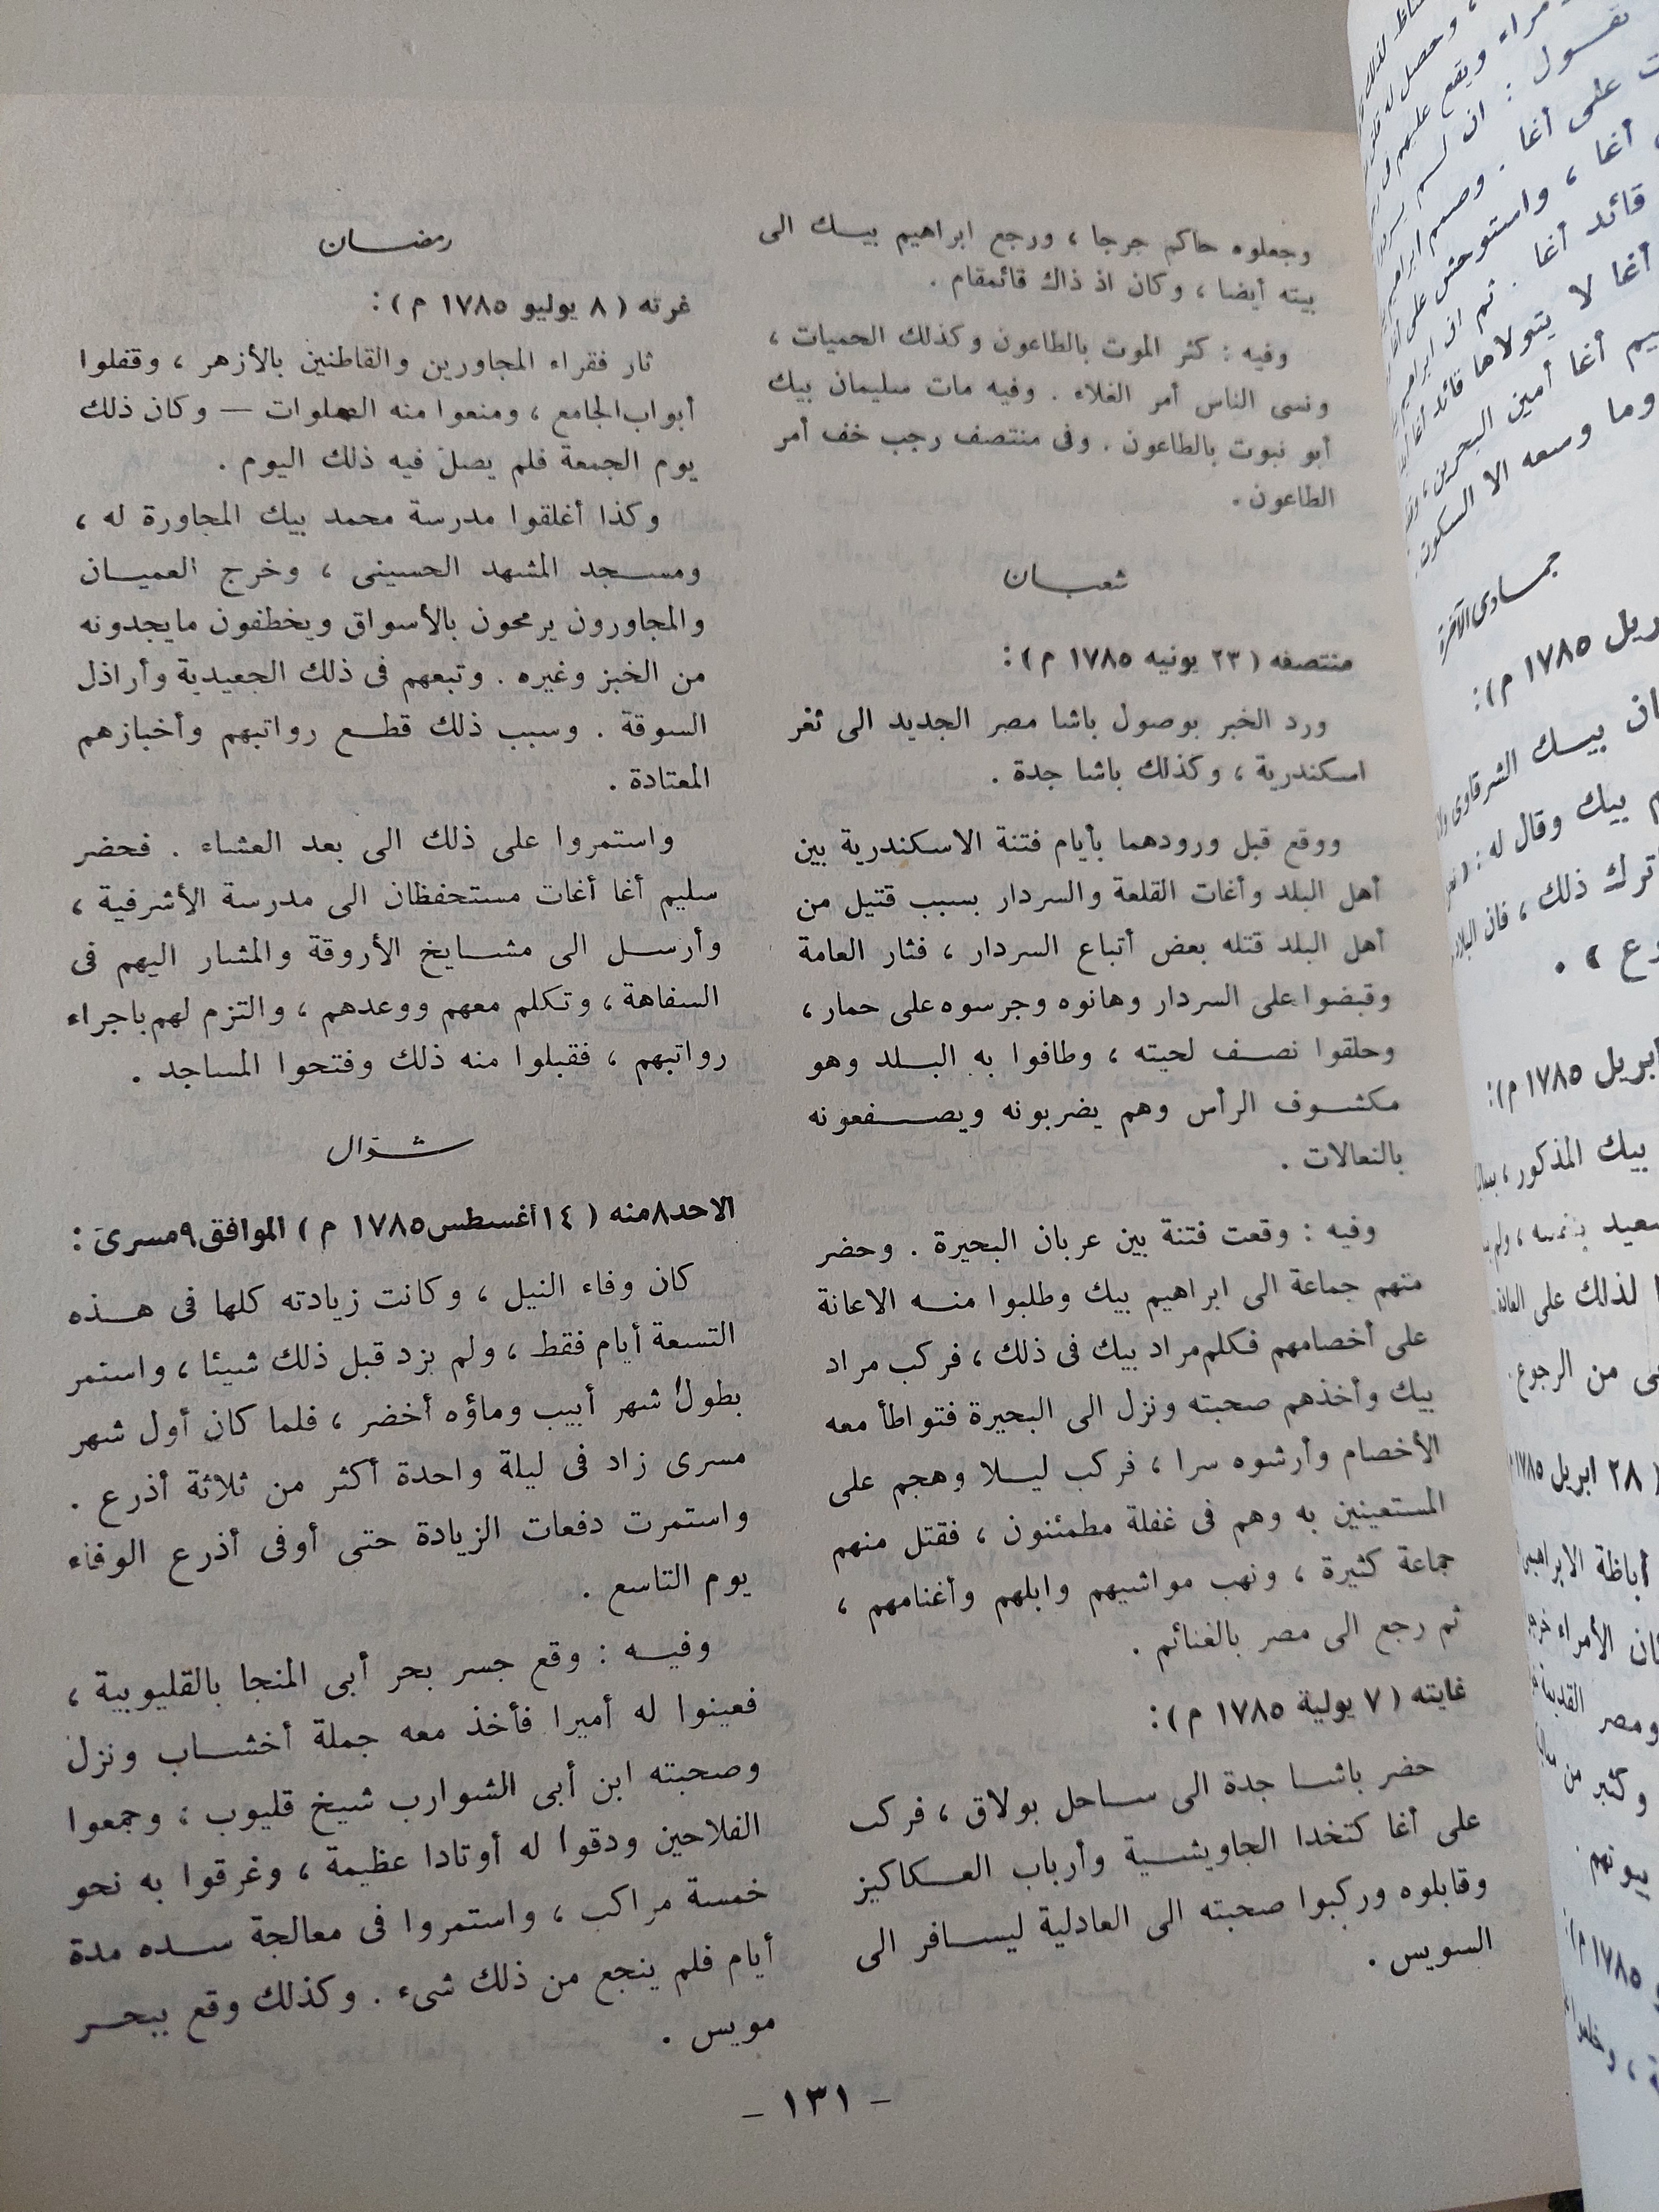 وجعلوه حاكم جرجا ، ورجع ابراهيم بيـــك الى
بيته أيضا ، وكان اذ ذاك قائمقام .
وفيه : كثر الموت بالطاعون وكذلك الحميات ،
ونسى الناس أمر الغلاء . وفيه مات سليمان بيك
أبو نبوت بالطاعون . وفى منتصف رجب خف أمر
الطاعون .
شعبــان
منتصفه ( ٢٣ يونيه ١٧٨٥ م ) :
ورد الخبر بوصول باشا مصر الجديد الى ثغر
اسكندرية ، وكذلك باشا جدة .
ووقع قبل ورودهما بأيام فتنة الاسكندرية بين
أهل البلد وأغات القلعة والسردار بسبب قتيل من
أهل البلد قتله بعض أتباع السردار ، فثار العامة
وقبضوا على السردار وهانوه وجرسوه على حمار ،
وحلقوا نصــف لحيته ، وطافوا به البــلد وهو
مكشــوف الرأس وهم يضربونه ويصــفعونه
بالنعالات .
وفيه : وقعت فتنة بين عربان البحيرة . وحضر
منهم جماعة الى ابراهيم بيك وطلبوا منــه الاعانة
على أخصامهم فكلم مراد بيك فى ذلك ، فركب مراد
بيك وأخذهم صحبته ونزل الى البحيرة فتواطأ معه
الأخصام وأرشوه سرا ، فركب ليــلا وهجم على
المستعينين به وهم فى غفلة مطمئنون ، فقتل منهم
جماعة كثيرة ، ونهب مواشيهم وابلهم وأغنامهم ،
ثم رجع الى مصر بالغنائم .
غايته ( ٧ يولية ١٧٨٥ م ) :
حضر باشــا جدة الى ســاحل بولاق ، فركب
على أغا كتخدا الجاويشــية وأرباب العــكاكيز
وقابلوه وركبوا صحبته الى العادلية ليســافر الى
السويس .
رمضــان
غرته ( ٨ يوليو ١٧٨٥ م ) :
ثار فقراء المجاورين والقاطنين بالأزهر ، وقفلوا
أبواب الجامع ، ومنعوا منه الصلوات — وكان ذلك
يوم الجمعة فلم يصل فيه ذلك اليوم .
وكذا أغلقوا مدرسة محمد بيك المجاورة له ،
ومســجد المشهد الحسينى ، وخرج العميــان
والمجاورون يرمحون بالأسواق ويخطفون مايجدونه
من الخبز وغيره . وتبعهم فى ذلك الجعيدية وأراذل
السوقة . وسبب ذلك قطــع رواتبهم وأخبازهم
المعتادة .
واستمروا على ذلك الى بعد العشاء . فحضر
سليم أغا أغات مستحفظان الى مدرسة الأشرفية ،
وأرســل الى مشــايخ الأروقة والمشار اليهم فى
السفاهة ، وتكلم معهم ووعدهم ، والتزم لهم باجراء
رواتبهم ، فقبلوا منه ذلك وفتحوا المساجد .
شــوال
الاحد ٨ منه ( ١٤ أغسطس ١٧٨٥ م ) الموافق ٩ مسرى :
كان وفاء النيل ، وكانت زيادته كلها فى هــذه
التسعة أيام فقط ، ولم يزد قبل ذلك شيئا ، واستمر
بطول شهر أبيب وماؤه أخضر ، فلما كان أول شهر
مسرى زاد فى ليلة واحدة أكثر من ثلاثة أذرع .
واستمرت دفعات الزيادة حتى أوفى أذرع الوفاء
يوم التاسع .
وفيــه : وقع جسر بحر أبى المنجا بالقليوبية ،
فعينوا له أميرا فأخذ معه جملة أخشــاب ونزل
وصحبته ابن أبى الشوارب شيخ قليوب ، وجمعوا
الفلاحين ودقوا له أوتادا عظيمة ، وغرقوا به نحو
خمسة مراكب ، واستمروا فى معالجة ســده مدة
أيام فلم ينجع من ذلك شىء . وكذلك وقع ببحــر
مويس .
– ١٣١ –
على أغا . وصمم ابراهيم
أغا ، واستوحش على
قائد أغا . ثم ان ابراهيم
أغا لا يتولاها قائد أغا
أغا أمين البحرين ،
وما وسعه الا السكوت
جمــادى الآخرة
١٧٨٥ م ) :
بيــك الشرقاوى
بيك وقال له :
ترك ذلك ، فان البلاد
ابريل ١٧٨٥ م ) :
بيك المذكور ،
لذلك على
من الرجوع .
( ٢٨ ابريل ١٧٨٥
أباظة
الأمراء
ومصر القديمة
وكثير من
بيوتهم .
١٧٨٥ م ) :